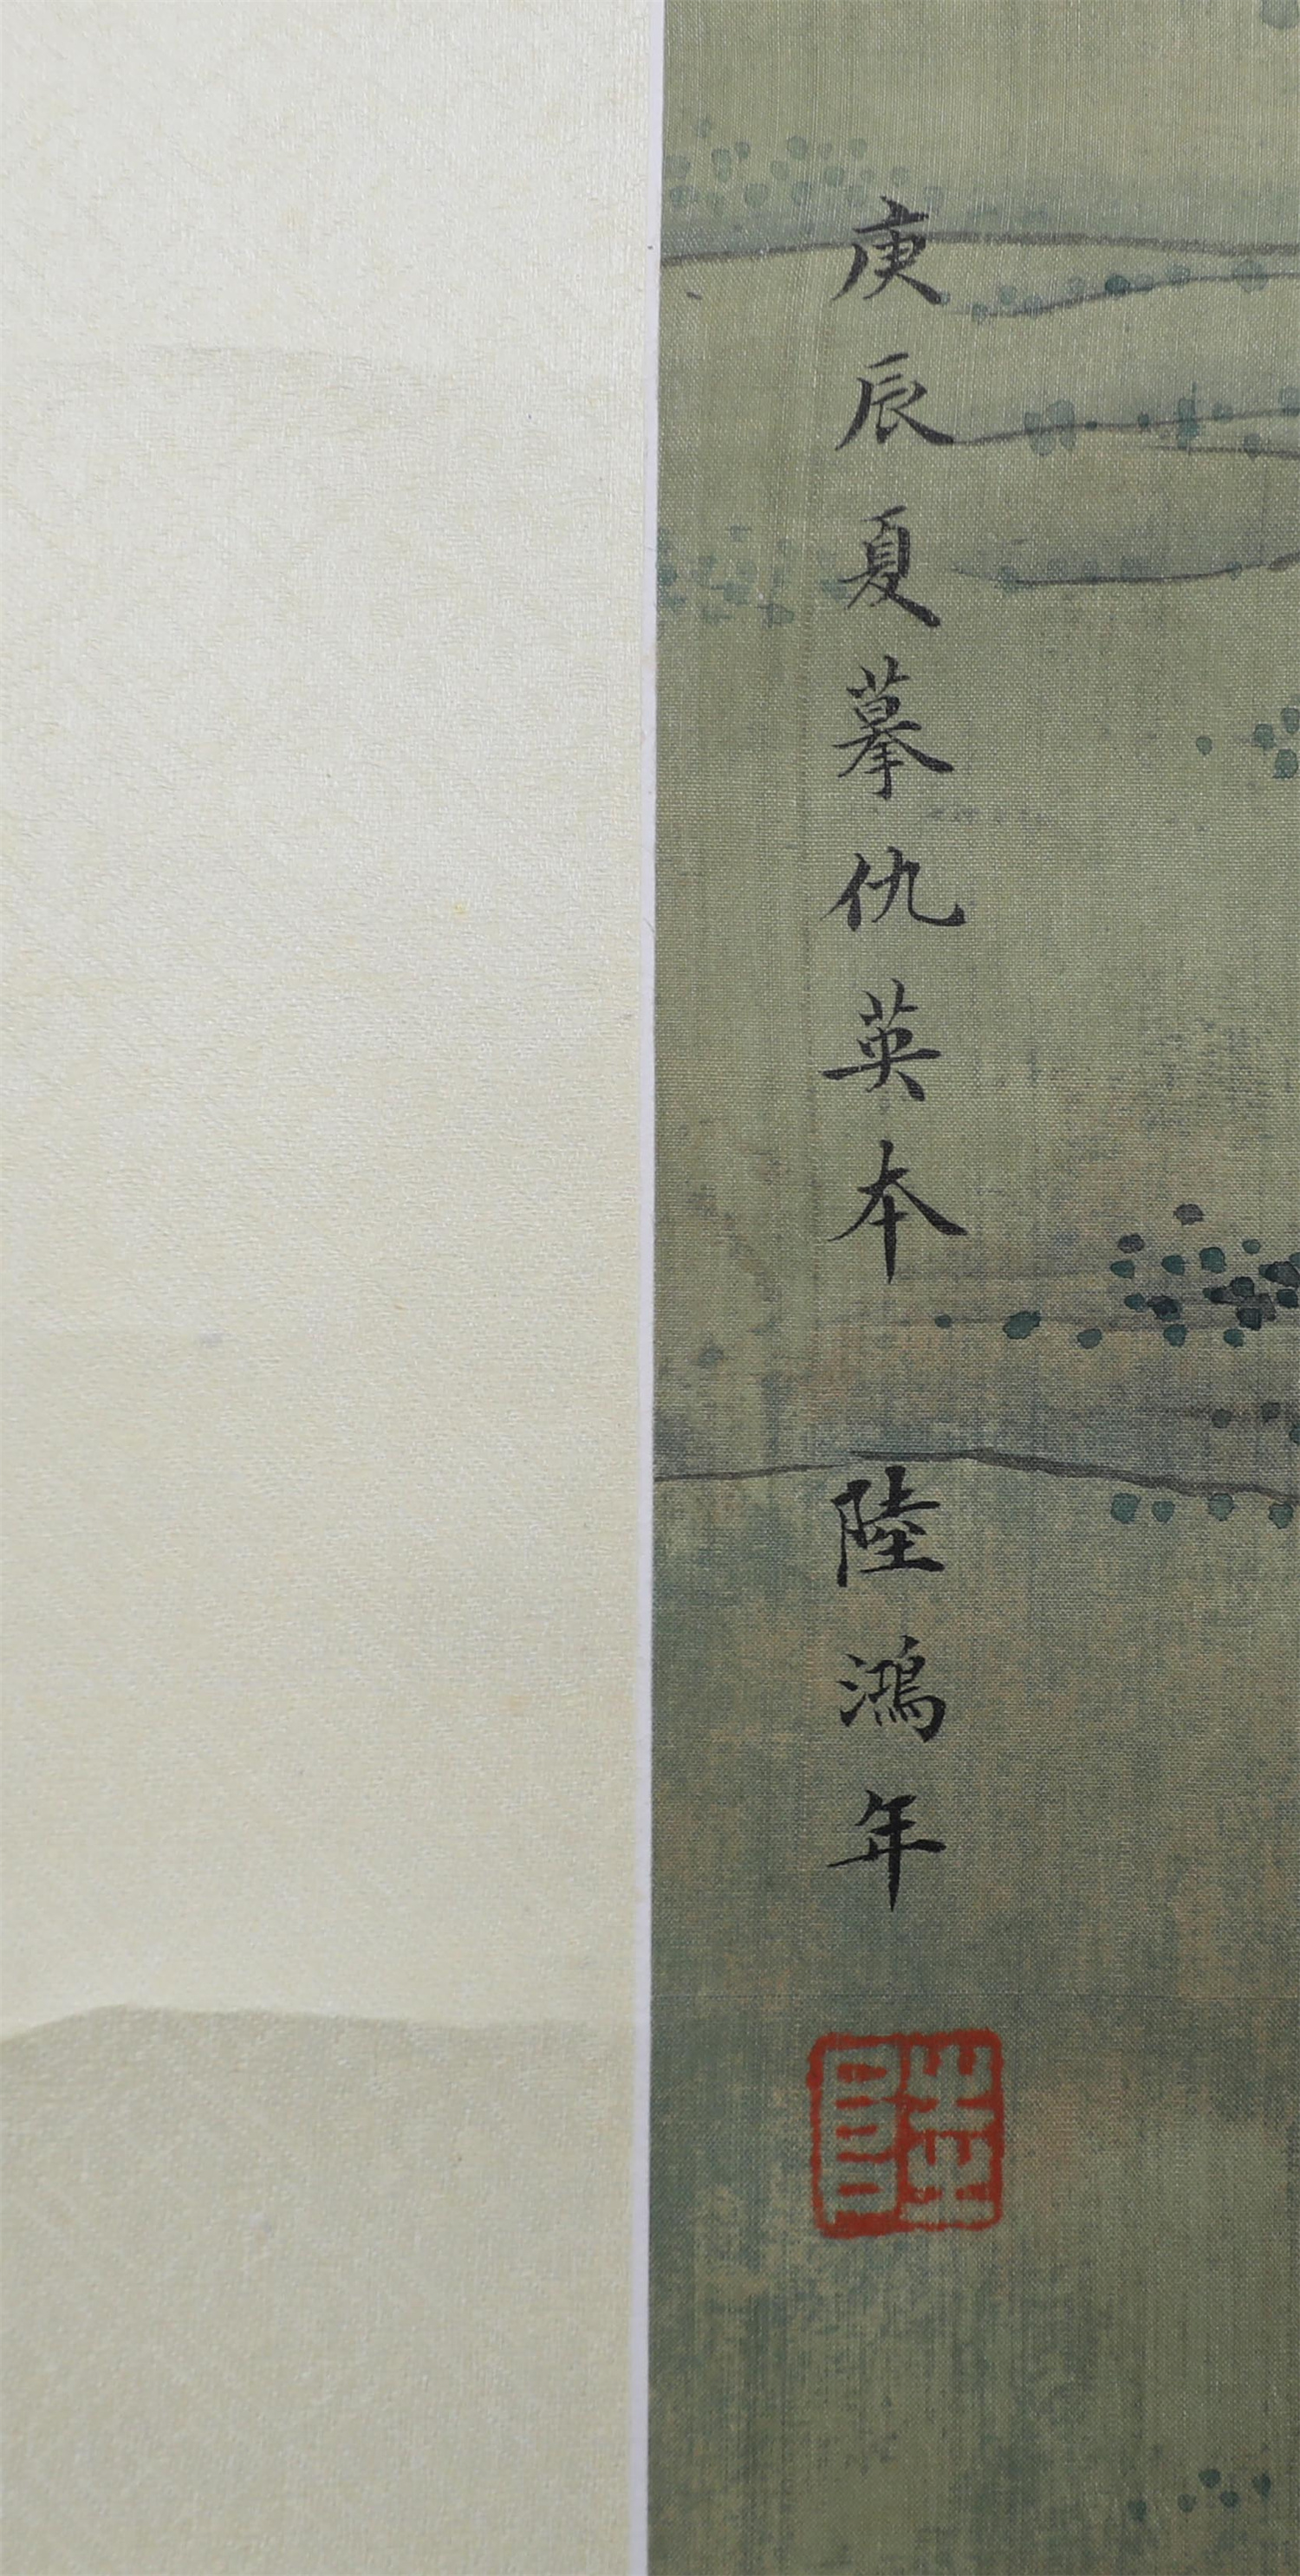 庚辰夏摹仇英本 陸鴻年